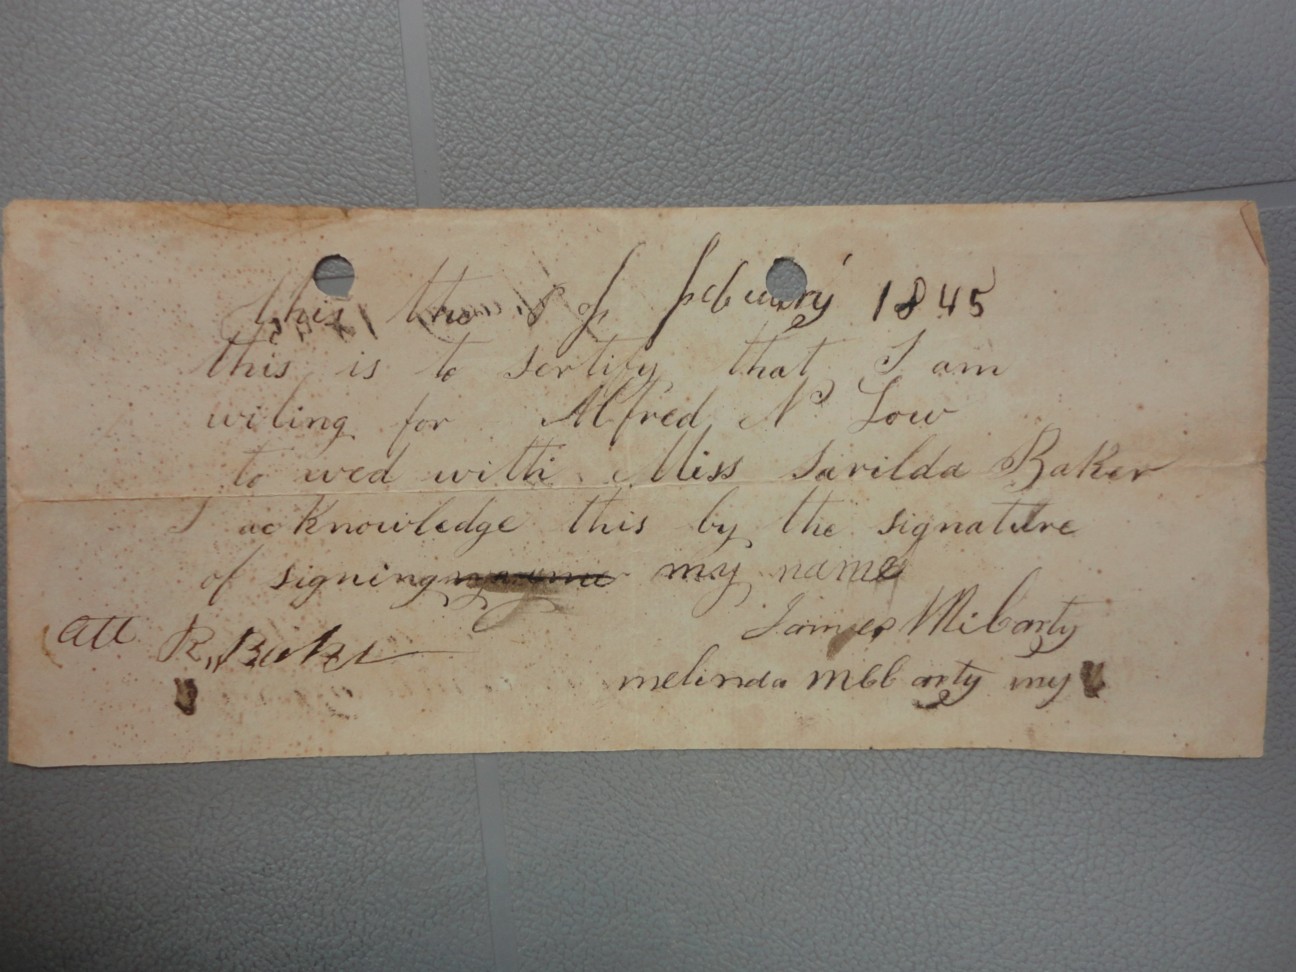 this the 8 of febuary 1845
this is to sertify that I am
wiling for Alfred N Low
to wed with Miss Sarilda Baker
I acknowledge this by the signature
of signing my name
James Mcbarty
Att R. Baker
melinda Mcbarty my